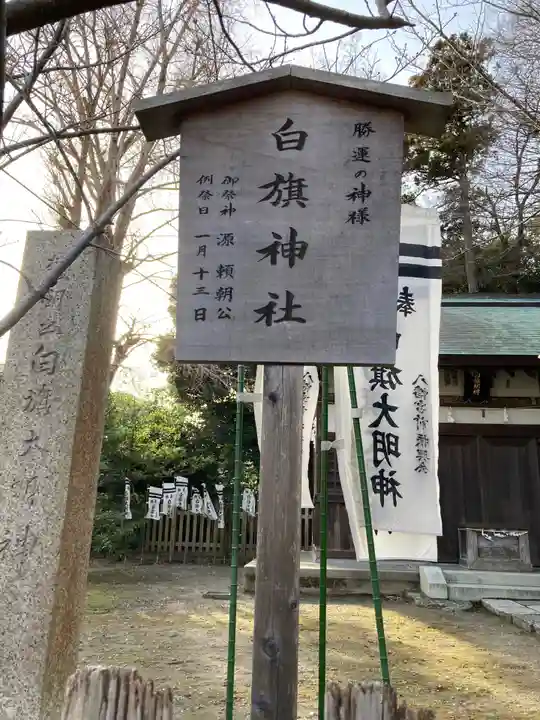 勝運の神様
白旗神社
御祭神 源頼朝公
例祭日 一月十三日
奉
旗大明神
白旗大明神